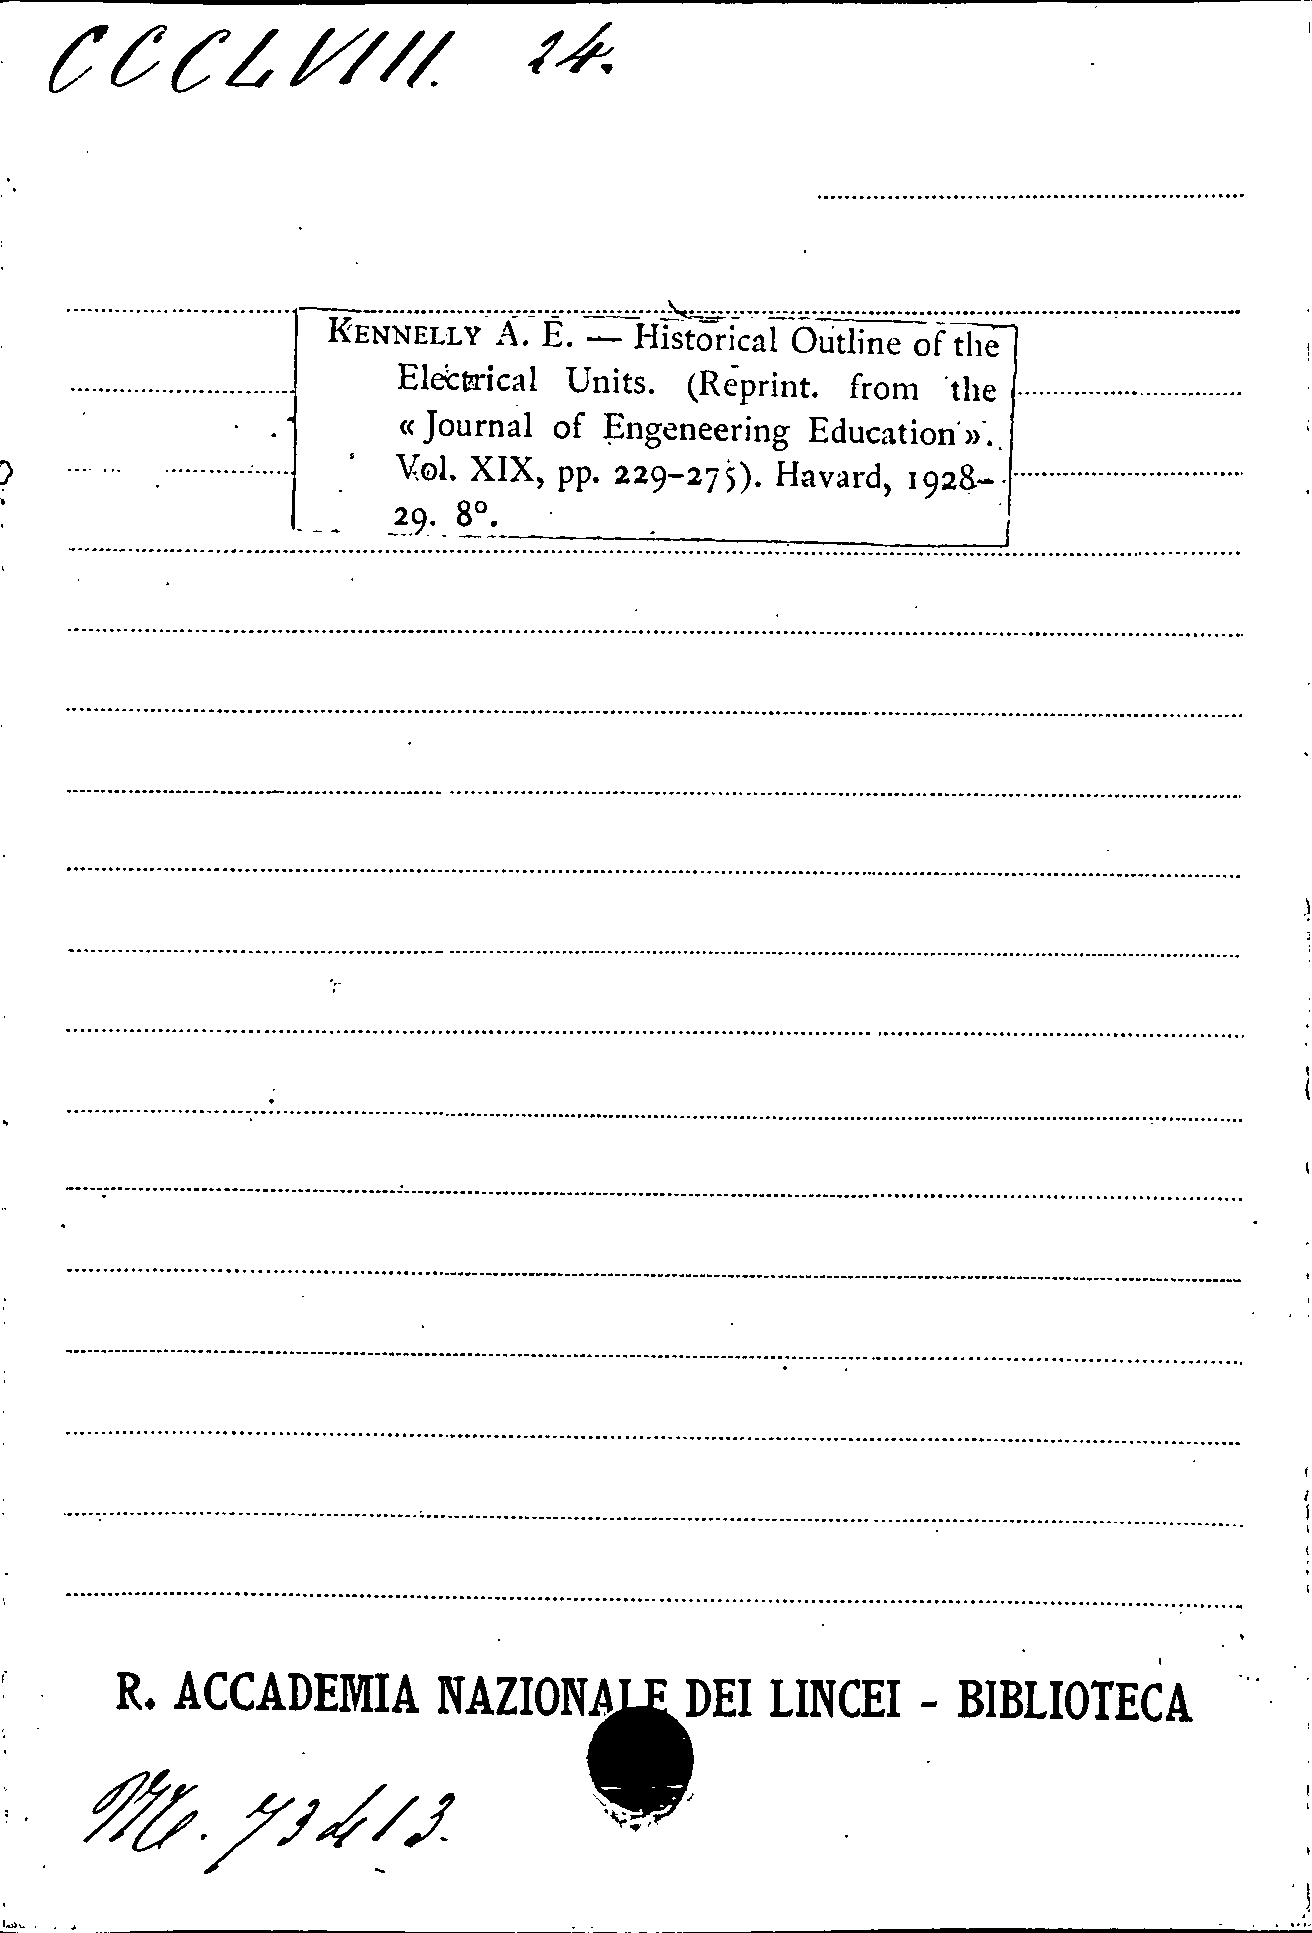 CCCLVIII. 24.
KENNELLY A. E. — Historical Outline of the
Electrical Units. (Reprint. from the
« Journal of Engeneering Education ».
Vol. XIX, pp. 229-275). Havard, 1928-
29. 8°.
R. ACCADEMIA NAZIONALE DEI LINCEI - BIBLIOTECA
M. 73413.